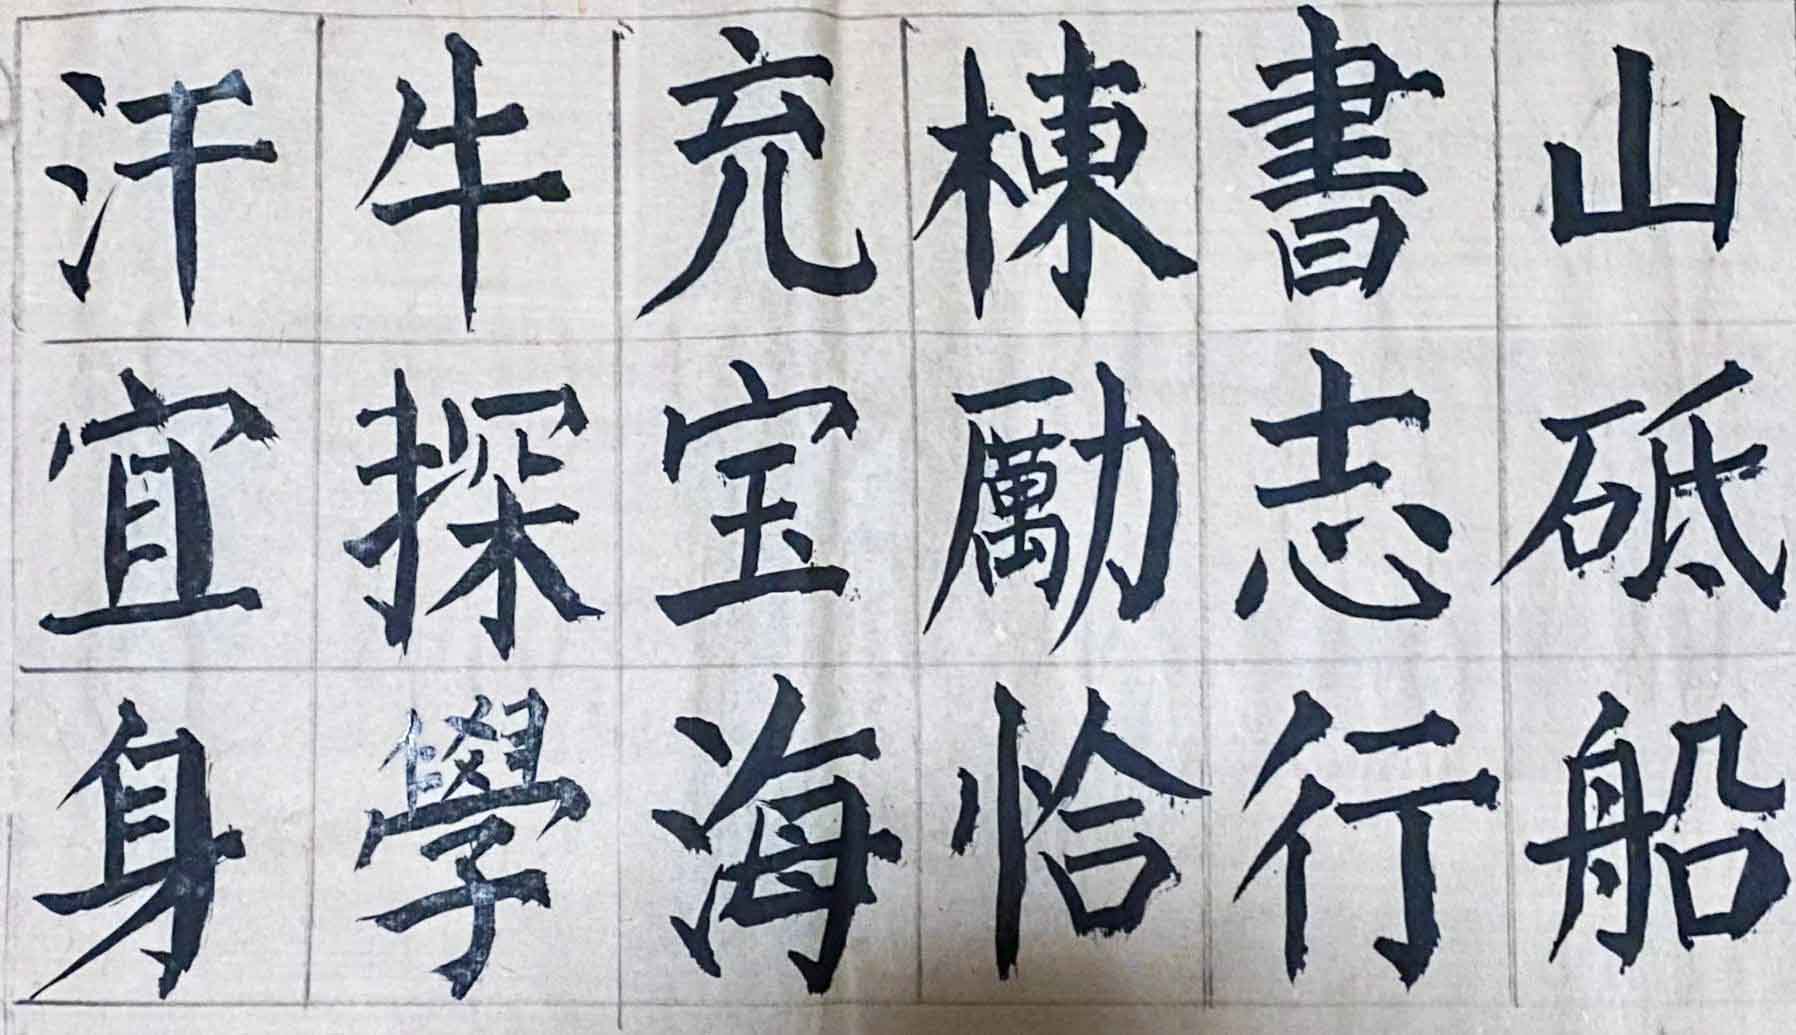 汗牛充棟書山
宜探宝勵志砥
身學海恰行船